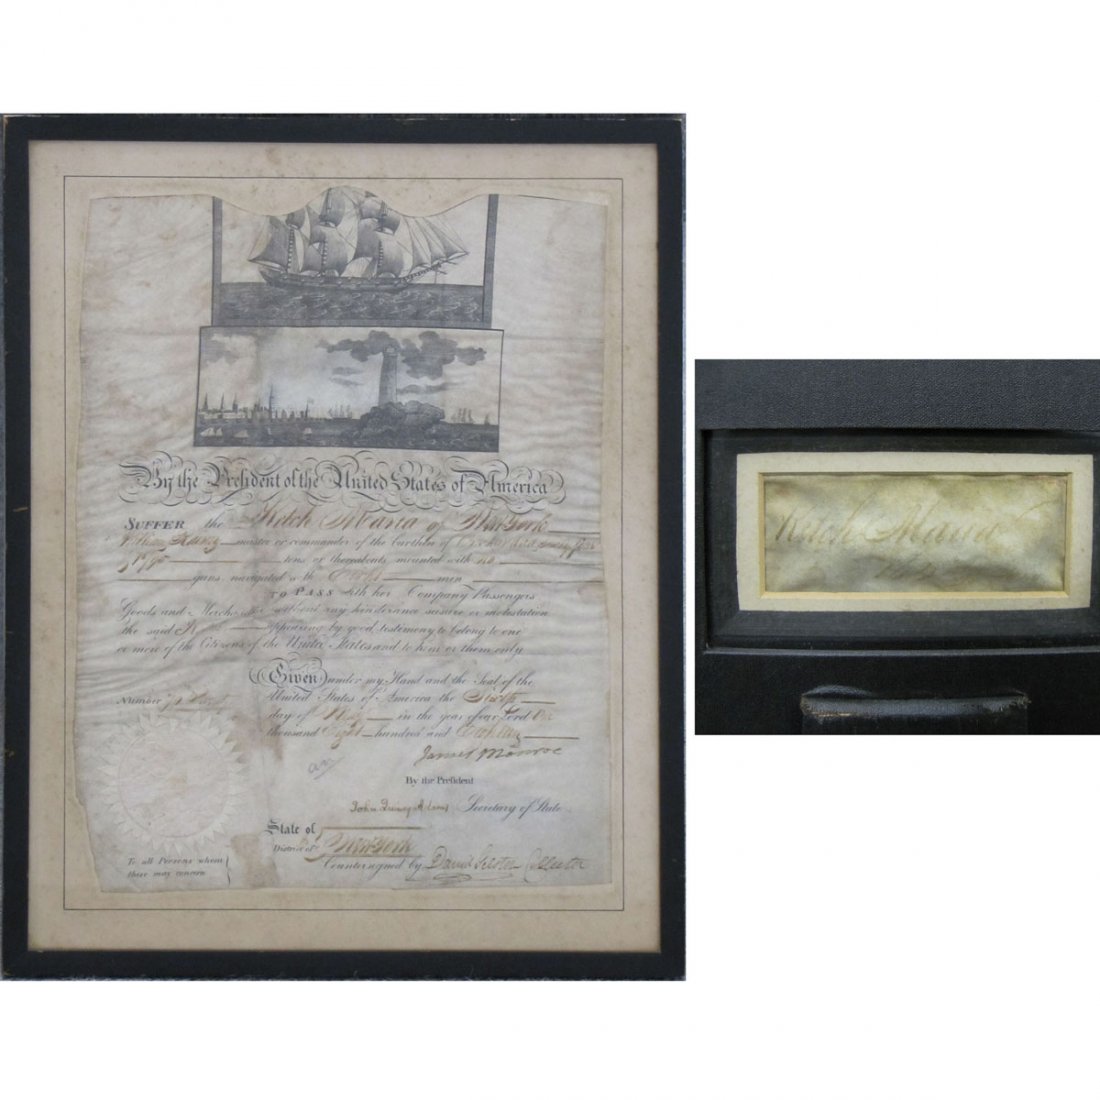 By the President of the United States of America
SUFFER the Ketch Maria of New York
William master or commander of the burthen of One hundred
tons or thereabouts mounted with no
guns, navigated with men
TO PASS with her Company Passengers
Goods and Merchandise without any hinderance seisure or molestation
the said Ketch appearing by good testimony to belong to one
or more of the Citizens of the United States and to him or them only
Given under my Hand and the Seal of the
United States of America the
Number
day of in the year of our Lord One
thousand Eight hundred and Eighteen
James Monroe
By the President
John Quincy Adams Secretary of State
State of
District of New York
Countersigned by Collector
To all Persons whom
these may concern
Ketch Maria